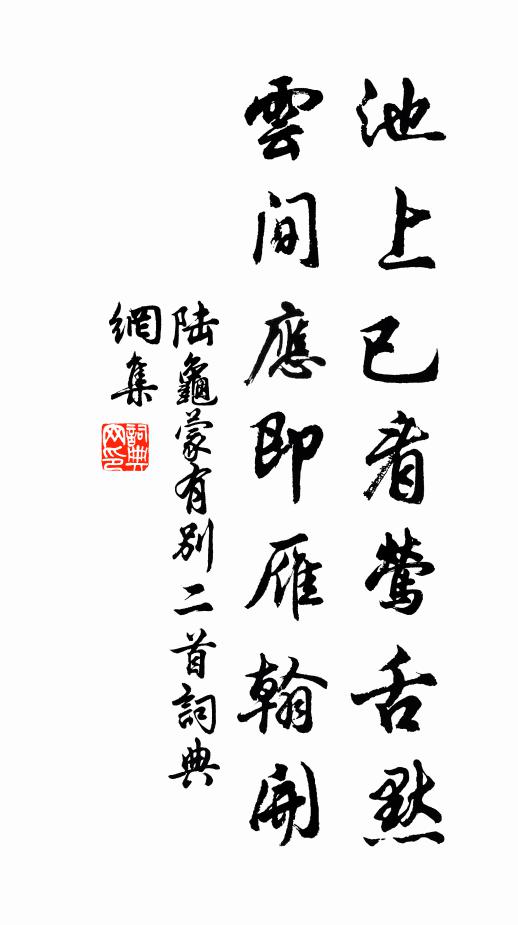 池上已看鶯舌默
雲間應即雁翰開
陆龜蒙有別二首詞典
網集
詞典
网印